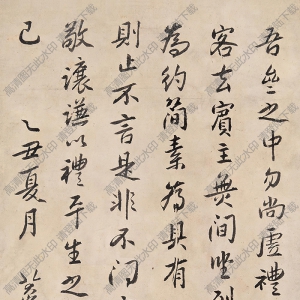 吾齋之中勿尚虛禮
客去賓主無間坐列
為約簡素為具有
則止不言是非不聞
敬讓謙以禮平生之
己 乙丑夏月